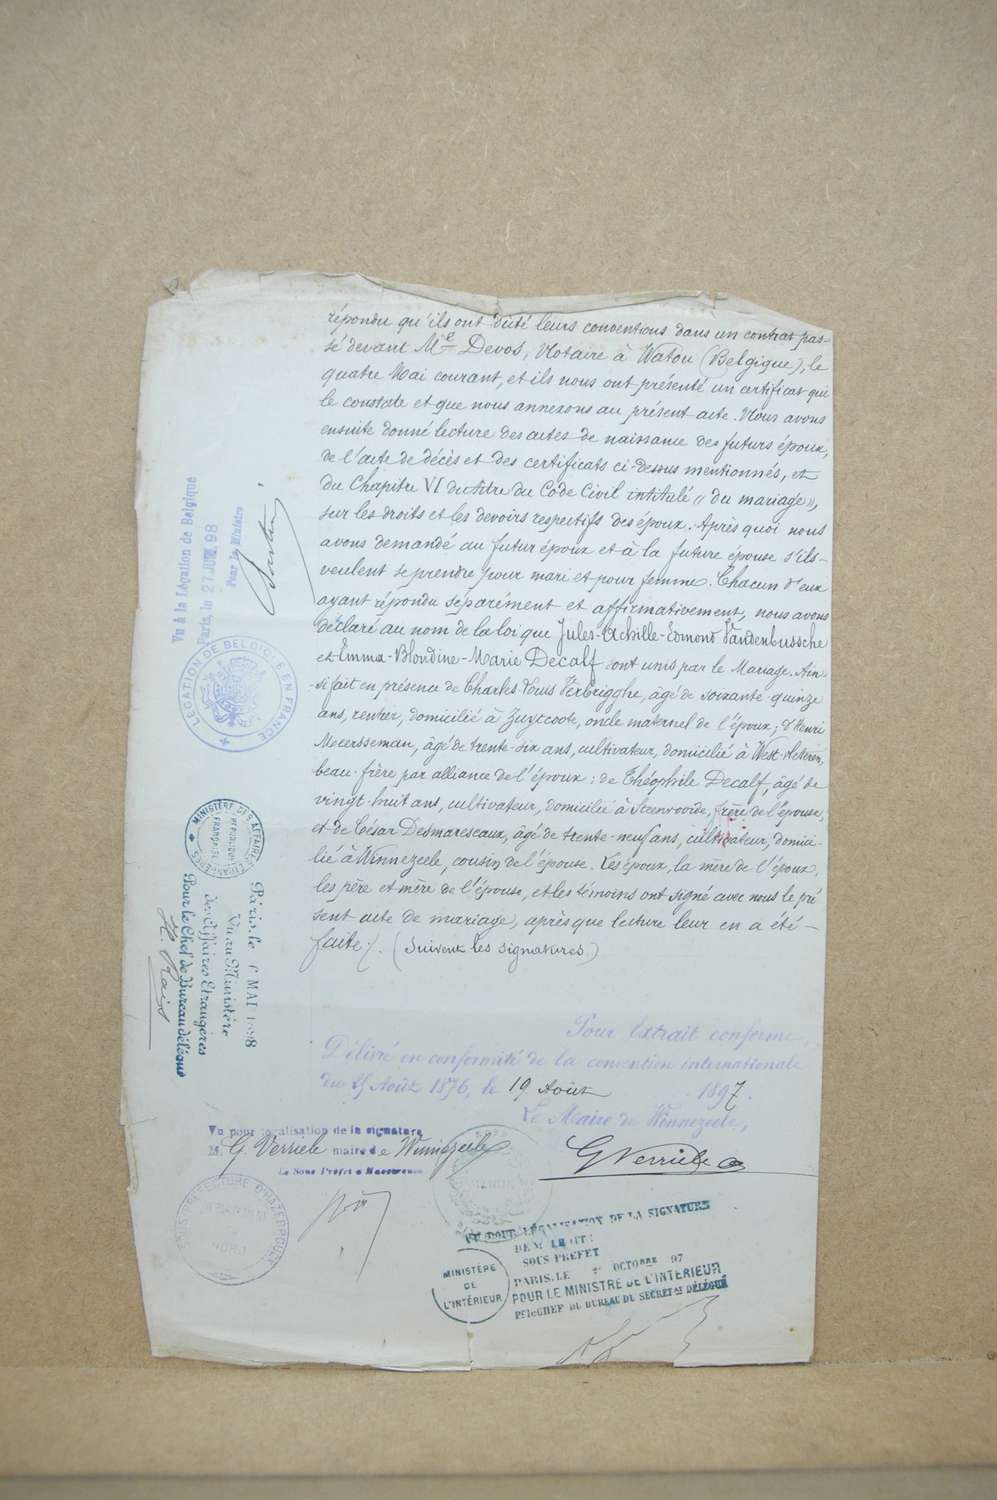 répondu qu'ils ont dicté leurs conventions dans un contrat pas-
sé devant Me Devos, Notaire à Watou (Belgique), le
quatre Mai courant, et ils nous ont présenté un certificat qui
le constate et que nous annexons au présent acte. Nous avons
ensuite donné lecture des actes de naissance des futurs époux,
de l'acte de décès et des certificats ci-dessus mentionnés, et
du Chapitre VI du titre du Code Civil intitulé « du mariage »,
sur les droits et les devoirs respectifs des époux. Après quoi nous
avons demandé au futur époux et à la future épouse s'ils
veulent se prendre pour mari et pour femme. Chacun d'eux
ayant répondu séparément et affirmativement, nous avons
déclaré au nom de la loi que Jules-Achille-Edmond Vandenbussche
et Emma-Blondine-Marie Decalf sont unis par le Mariage. Ain
si fait en présence de Charles-Louis Verbrigghe, âgé de soixante-quinze
ans, rentier, domicilié à Zuytcoote, oncle maternel de l'époux; d'Henri
Meersseman, âgé de trente-six ans, cultivateur, domicilié à West-Vleteren,
beau-frère par alliance de l'époux; de Théophile Decalf, âgé de
vingt-huit ans, cultivateur, domicilié à Steenvoorde, frère de l'épouse,
et de César Desmarescaux, âgé de trente-neuf ans, cultivateur, domici-
lié à Winnezeele, cousin de l'épouse. Les époux, la mère de l'époux,
les père et mère de l'épouse, et les témoins ont signé avec nous le pré
sent acte de mariage, après que lecture leur en a été
faite ./. (Suivent les signatures)
Pour Extrait conforme,
Délivré en conformité de la convention internationale
du 25 Août 1876, le 19 Août 1897.
Le Maire de Winnezeele,
G Verriele
Vu pour légalisation de la signature
M. G. Verriele maire de Winnezeele
Le Sous Préfet
SOUS-PRÉFECTURE D'HAZEBROUCK
NORD
VU POUR LÉGALISATION DE LA SIGNATURE
DE M
SOUS PREFET
PARIS, LE OCTOBRE 97
POUR LE MINISTRE DE L'INTÉRIEUR
CHEF DU BUREAU DU SECRET DÉLÉGUÉ
MINISTÈRE
DE
L'INTÉRIEUR
Vu à la Légation de Belgique
Paris, le 27 JUIN 98
Pour le Ministre
LÉGATION DE BELGIQUE EN FRANCE
MINISTÈRE DES AFFAIRES ÉTRANGÈRES
RÉPUBLIQUE
FRANÇAISE
Paris, le MAI 1898
Vu au Ministère
des Affaires Etrangères
Pour le Chef de Bureau délégué